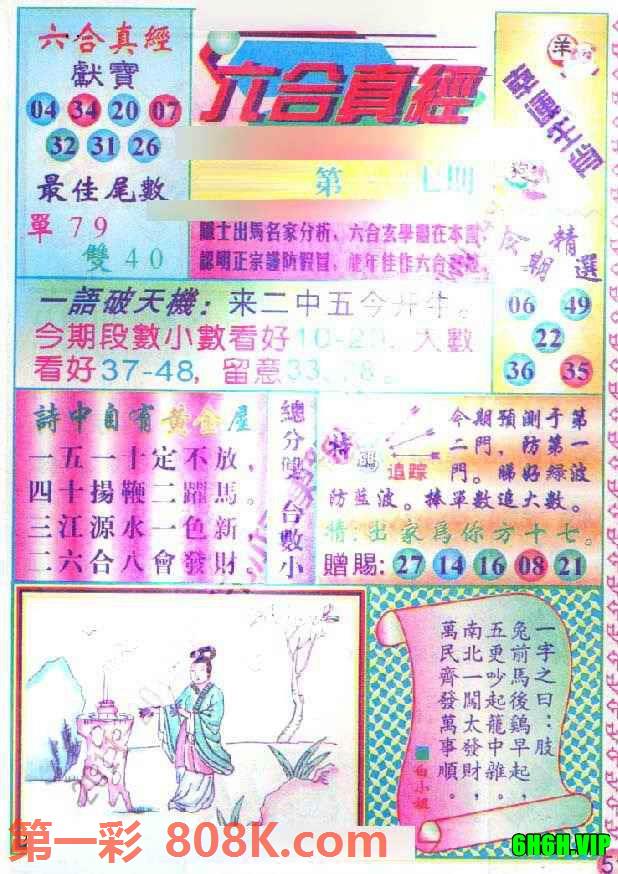 六合真經
獻寶
04 34 20 07
32 31 26
最佳尾數
單 7 9
雙 4 0
六合真經
第 七期
羊
出馬名家分析、六合玄學盡在本
認明正宗謹防假冒、 年佳作六合
期精選
06 49
22
36 35
一語破天機：来二中五今开牛。
今期段數小數看好10-2 ，大數
看好37-48，留意33
詩中自有黃金屋
一五一十定不放，
四十揚鞭二躍馬。
三江源水一色新，
二六合八會發財。
總分 雙
合數小
特碼追踪
今期預測于第
二門，防第一
門。睇好綠波
防藍波。捧單數追大數。
猜:出家為你方十七。
贈賜: 27 14 16 08 21
一字之曰：肢
兔前馬後鷄早起，
五更吵起龍中雜。
南北一闖太發財，
萬民齊發萬事順。
白小姐
第一彩 808K.com
6H6H.VIP
5